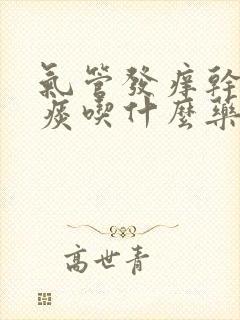 氣管發癢幹
痰喫什麼藥
高世青